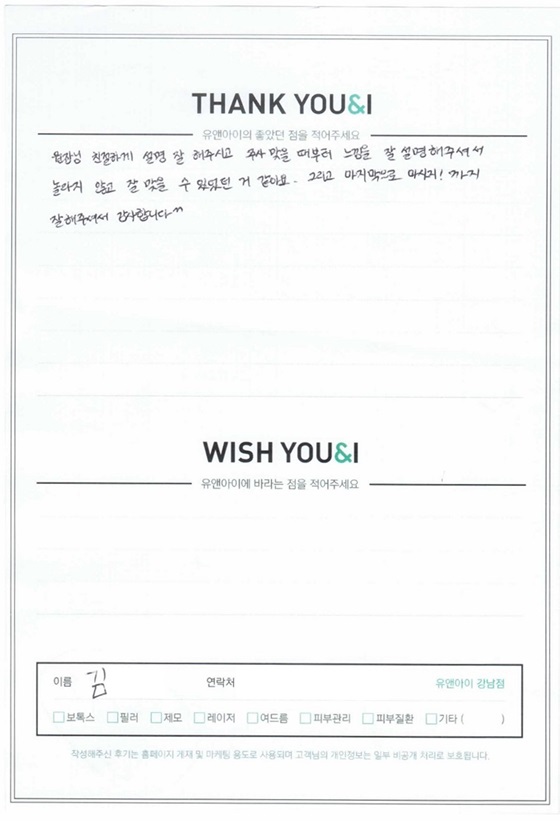 THANK YOU&I
유앤아이의 좋았던 점을 적어주세요
원장님 친절하게 설명 잘 해주시고 주사 맞을 때부터 느낌을 잘 설명해주셔서
놀라지 않고 잘 맞을 수 있었던 거 같아요. 그리고 마지막으로 마사지! 까지
잘해주셔서 감사합니다^^
WISH YOU&I
유앤아이에 바라는 점을 적어주세요
이름 김 연락처 유앤아이 강남점
보톡스 필러 제모 레이저 여드름 피부관리 피부질환 기타 ( )
작성해주신 후기는 홈페이지 게재 및 마케팅 용도로 사용되며 고객님의 개인정보는 일부 비공개 처리로 보호됩니다.